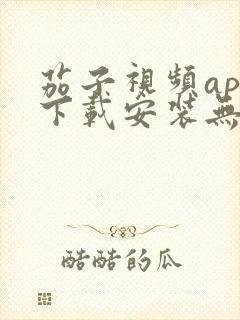 茄子視頻ap
下載安装無
酷酷的瓜